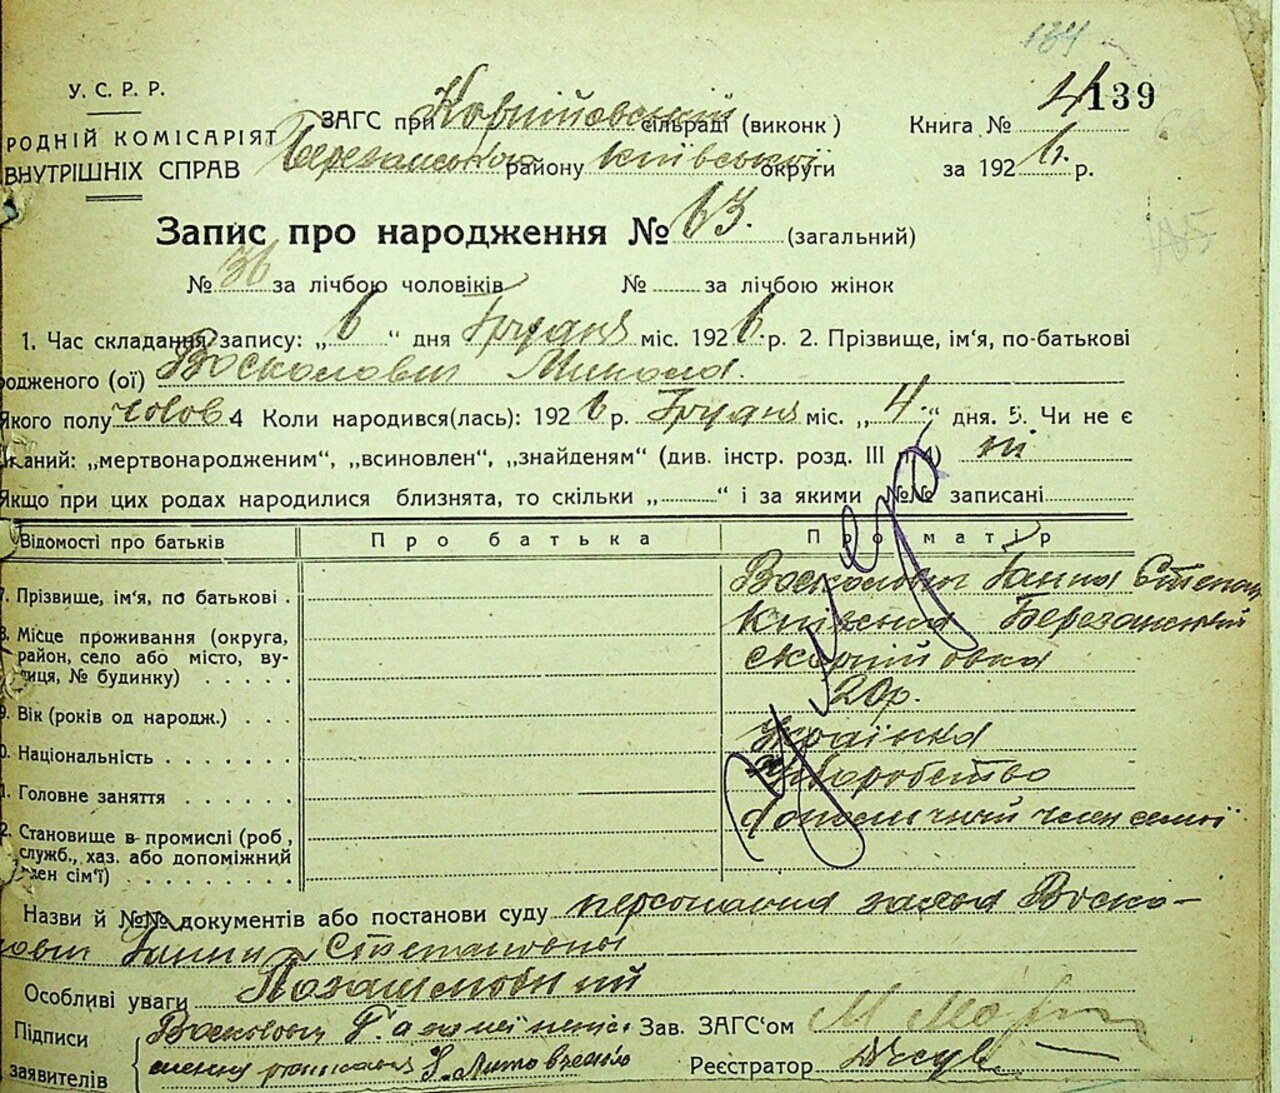 134
У. С. Р. Р.
ЗАГС при Корніїовський сільраді (виконк)
Книга № 4 139
РОДНІЙ КОМІСАРІЯТ
ВНУТРІШНІХ СПРАВ
Березанського району Київської округи
за 1926 р.
Запис про народження № 63. (загальний)
185
№ 36 за лічбою чоловіків № за лічбою жінок
1. Час складання запису: „ 6 “ дня Грудня міс. 1926 р. 2. Прізвище, ім‘я, по-батькові
родженого (ої) Восколович Микола.
Якого полу чолов. 4 Коли народився(лась): 1926 р. Грудня міс. „ 4 “ дня. 5. Чи не є
каний: „мертвонародженим“, „всиновлен“, „знайденям“ (див. інстр. розд. III п 4) ні
Якщо при цих родах народилися близнята, то скільки „ “ і за якими №№ записані
Відомості про батьків Про батька Про матір
7. Прізвище, ім‘я, по батькові . Восколович Ганна Степан
8. Місце проживання (округа, Київська Березанський
район, село або місто, ву-
лиця, № будинку) . . . . . скорнійовка
9. Вік (років од народж.) . . . 20р.
0. Національність . . . . . . . Українка
1. Головне заняття . . . . . . хліборобство
2. Становище в промислі (роб, допомічний член семьї
служб., хаз. або допоміжний
член сім‘ї) . . . . . . . .
Помер
Назви й №№ документів або постанови суду персональна заява Воско-
лович Ганни Степановной
Особливі уваги Позашлюбний
Підписи
заявителів
Воскович Г. а за неї
Литовченко
Зав. ЗАГС‘ом
Реєстратор